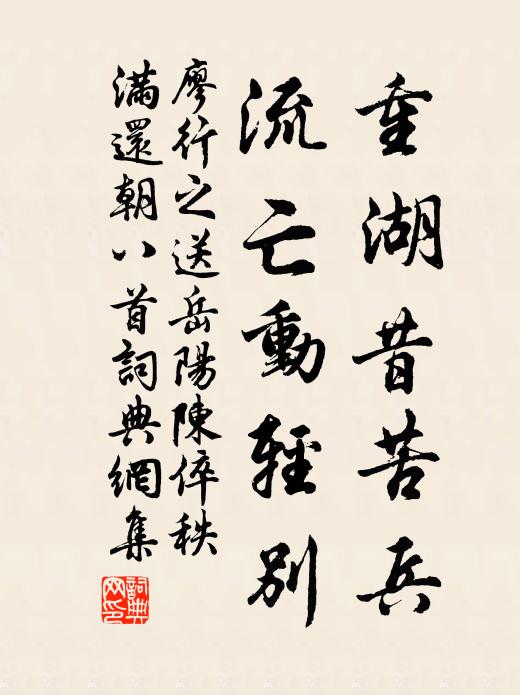 重湖昔苦兵
流亡動輕別
廖行之送岳陽陳倅秩
滿還朝八首詞典網集
詞典网印